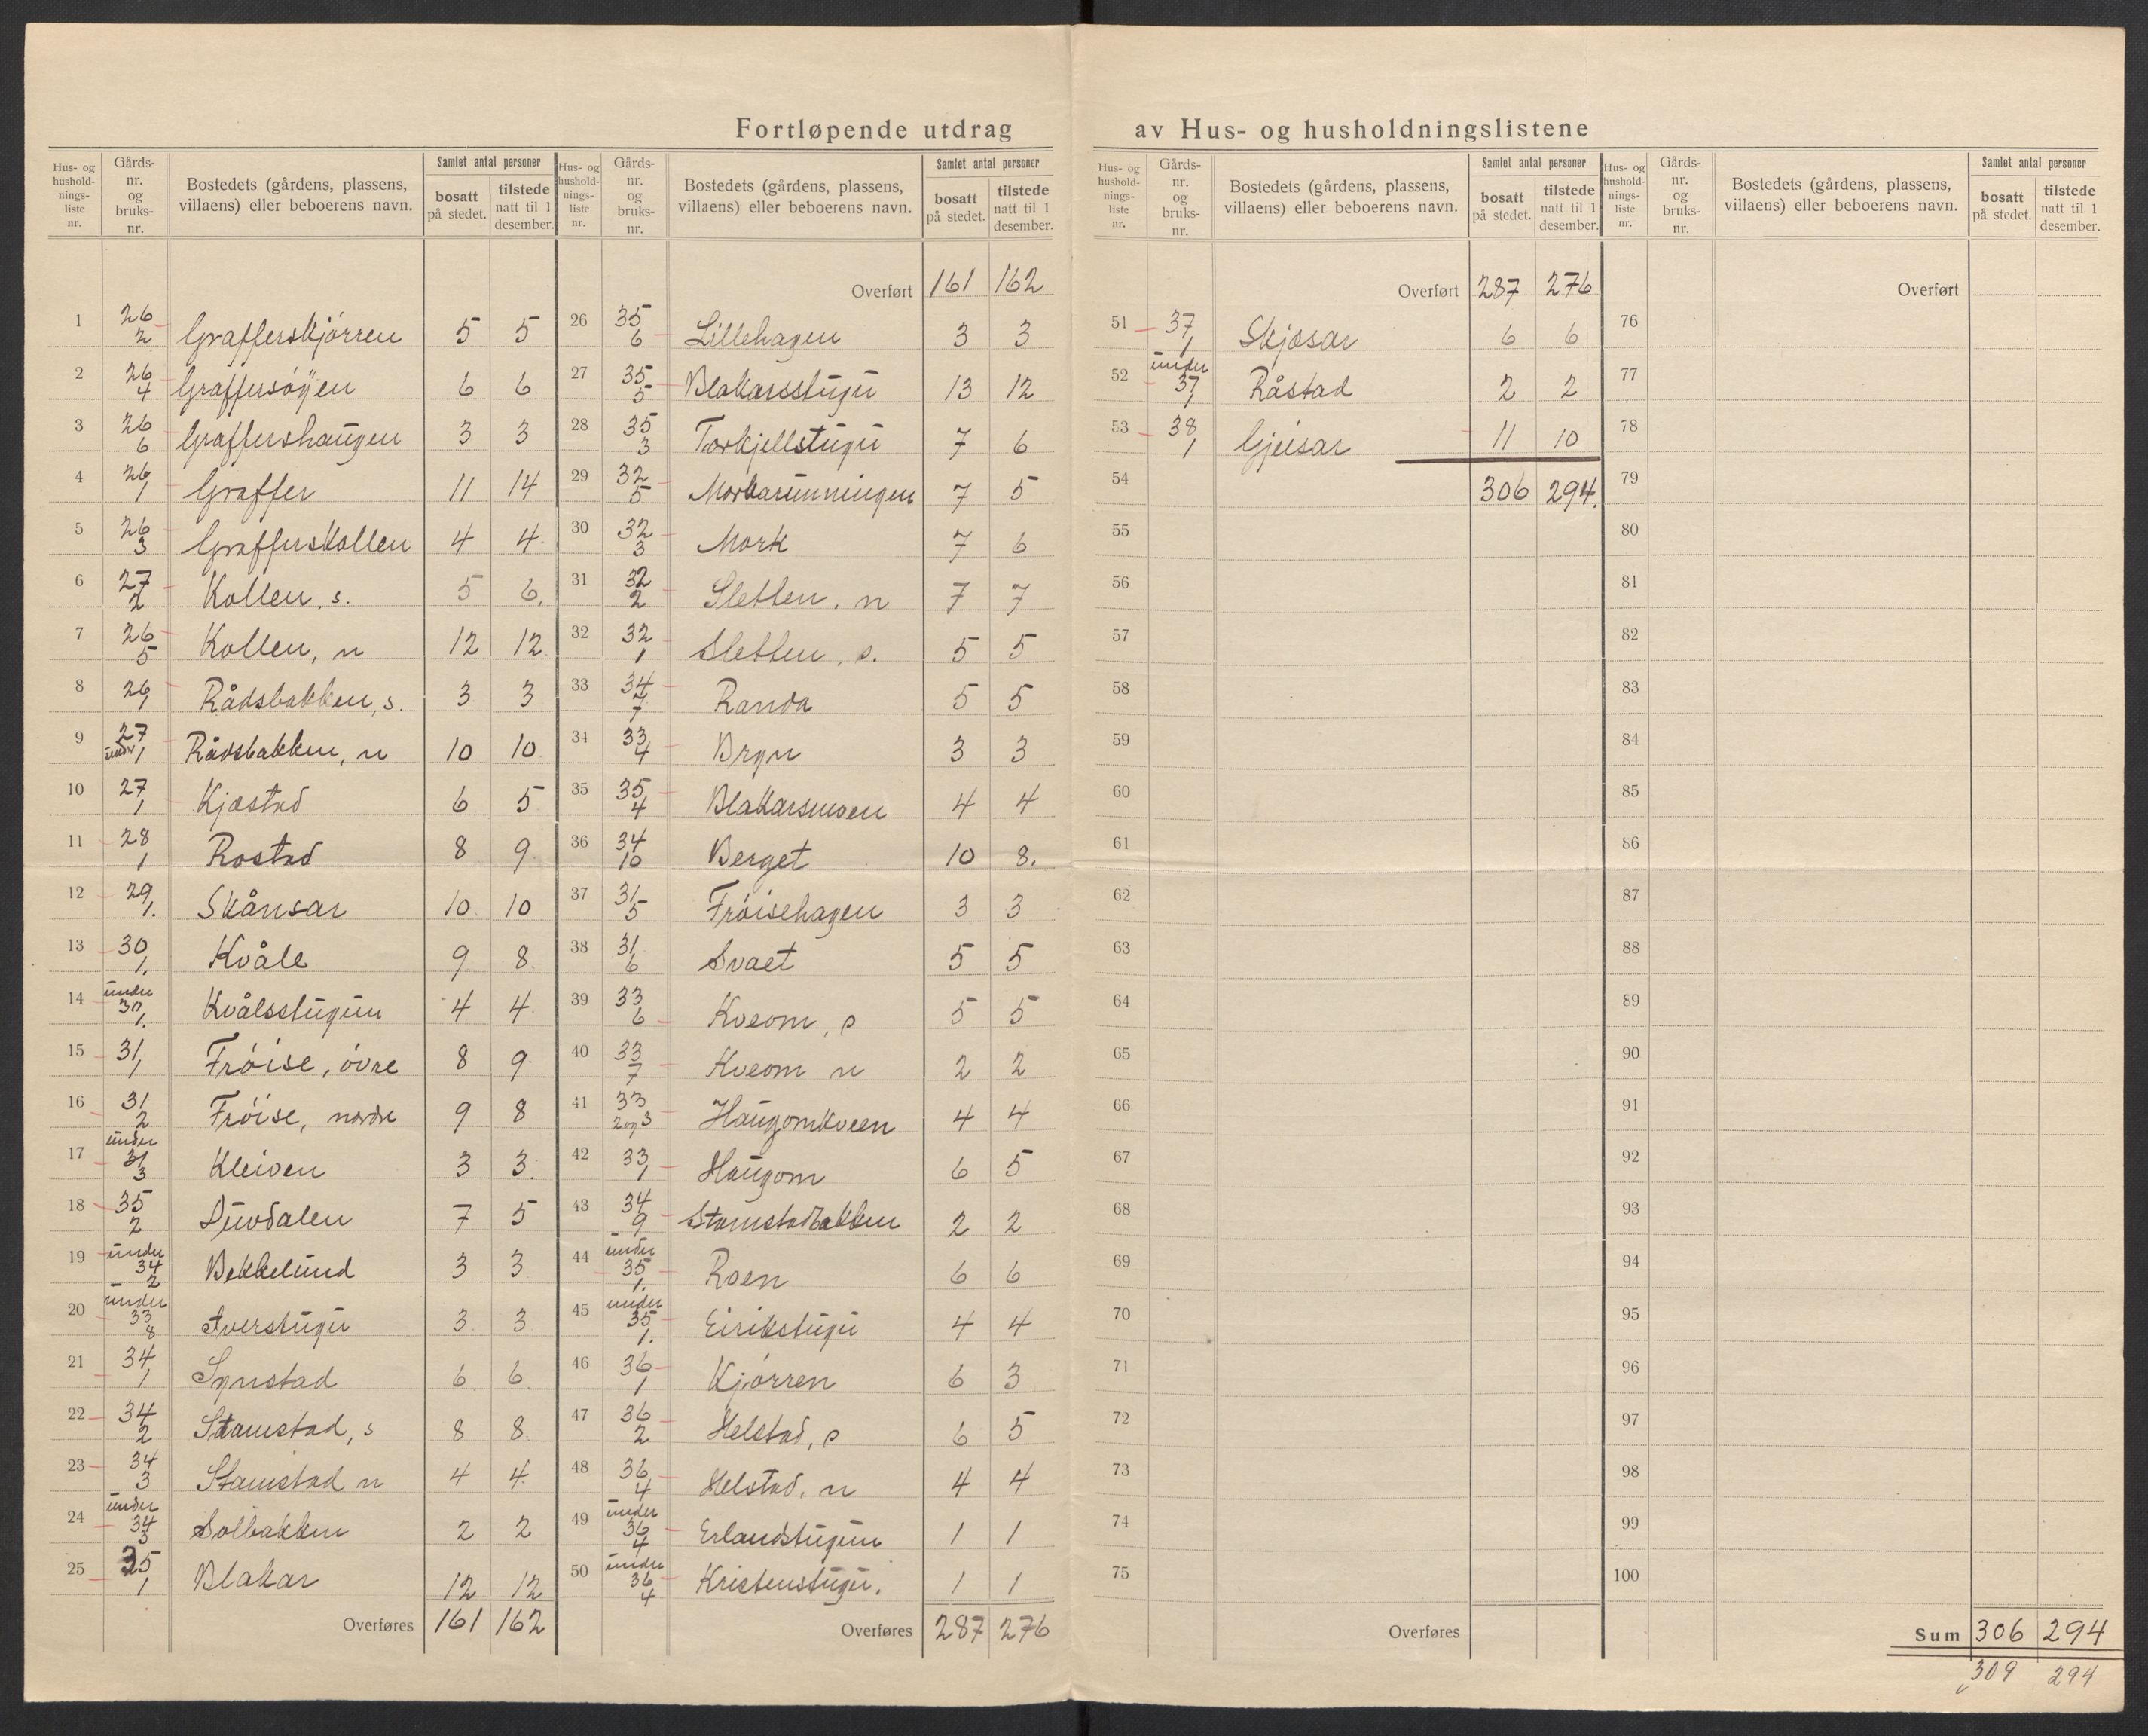 Fortløpende utdrag av Hus- og husholdningslistene
Hus- og hushold- nings- liste nr. | Gårds- nr. og bruks- nr. | Bostedets (gårdens, plassens, villaens) eller beboerens navn. | Samlet antal personer | bosatt på stedet. | tilstede natt til 1 desember.
1 26/2 Grafferskjørren 5 5
2 26/4 Graffersøyen 6 6
3 26/6 Graffershaugen 3 3
4 26/1 Graffer 11 14
5 26/3 Grafferskollen 4 4
6 27/2 Kollen, s. 5 6.
7 26/5 Kollen, n 12 12
8 26/1 Rådsbakken, s. 3 3
9 27/1 under Rådsbakken, n 10 10
10 27/1 Kjæstad 6 5
11 28/1 Rostad 8 9
12 29/1. Skånsar 10 10
13 30/1. Kvåle 9 8
14 under 30/1. Kvålsstugun 4 4
15 31/1 Frøise, øvre 8 9
16 31/2 Frøise, nordre 9 8
17 under 31/3 Kleiven 3 3.
18 35/2 Duvdalen 7 5
19 under 34/2 Bekkelund 3 3
20 under 33/8 Iverstugu 3 3
21 34/1 Synstad 6 6
22 34/2 Stamstad, s 8 8
23 34/3 Stamstad n 4 4
24 under 34/3 Solbakken 2 2
25 35/1 Blakar 12 12
Overføres 161 162
Hus- og hushold- nings- liste nr. | Gårds- nr. og bruks- nr. | Bostedets (gårdens, plassens, villaens) eller beboerens navn. | Samlet antal personer | bosatt på stedet. | tilstede natt til 1 desember.
Overført 161 162
26 35/6 Lillehagen 3 3
27 35/5 Blakarsstugu 13 12
28 35/3 Torkjellstugu 7 6
29 32/5 Morkarunningen 7 5
30 32/3 Mork 7 6
31 32/2 Sletten, n 7 7
32 32/1 Sletten, s. 5 5
33 34/7 Randa 5 5
34 33/4 Bryn 3 3
35 35/4 Blakarsmoen 4 4
36 34/10 Berget 10 8.
37 31/5 Frøisehagen 3 3
38 31/6 Svaet 5 5
39 33/6 Kveom, s 5 5
40 33/7 Kveom n 2 2
41 33/2 og 3 Haugomkveen 4 4
42 33/1 Haugom 6 5
43 34/9 Stamstadbakken 2 2
44 under 35/1. Roen 6 6
45 under 35/1. Eirikstugu 4 4
46 36/1 Kjørren 6 3
47 36/2 Helstad, s 6 5
48 36/4 Helstad, n 4 4
49 under 36/4 Erlandstugun 1 1
50 under 36/4 Kristenstugu. 1 1
Overføres 287 276
Hus- og hushold- nings- liste nr. | Gårds- nr. og bruks- nr. | Bostedets (gårdens, plassens, villaens) eller beboerens navn. | Samlet antal personer | bosatt på stedet. | tilstede natt til 1 desember.
Overført 287 276
51 37/1 Skjøsar 6 6
52 under 37/1 Råstad 2 2
53 38/1 Gjeisar 11 10
54 306 294.
55
56
57
58
59
60
61
62
63
64
65
66
67
68
69
70
71
72
73
74
75
Overføres
Hus- og hushold- nings- liste nr. | Gårds- nr. og bruks- nr. | Bostedets (gårdens, plassens, villaens) eller beboerens navn. | Samlet antal personer | bosatt på stedet. | tilstede natt til 1 desember.
Overført
76
77
78
79
80
81
82
83
84
85
86
87
88
89
90
91
92
93
94
95
96
97
98
99
100
Sum 306 294
309 294